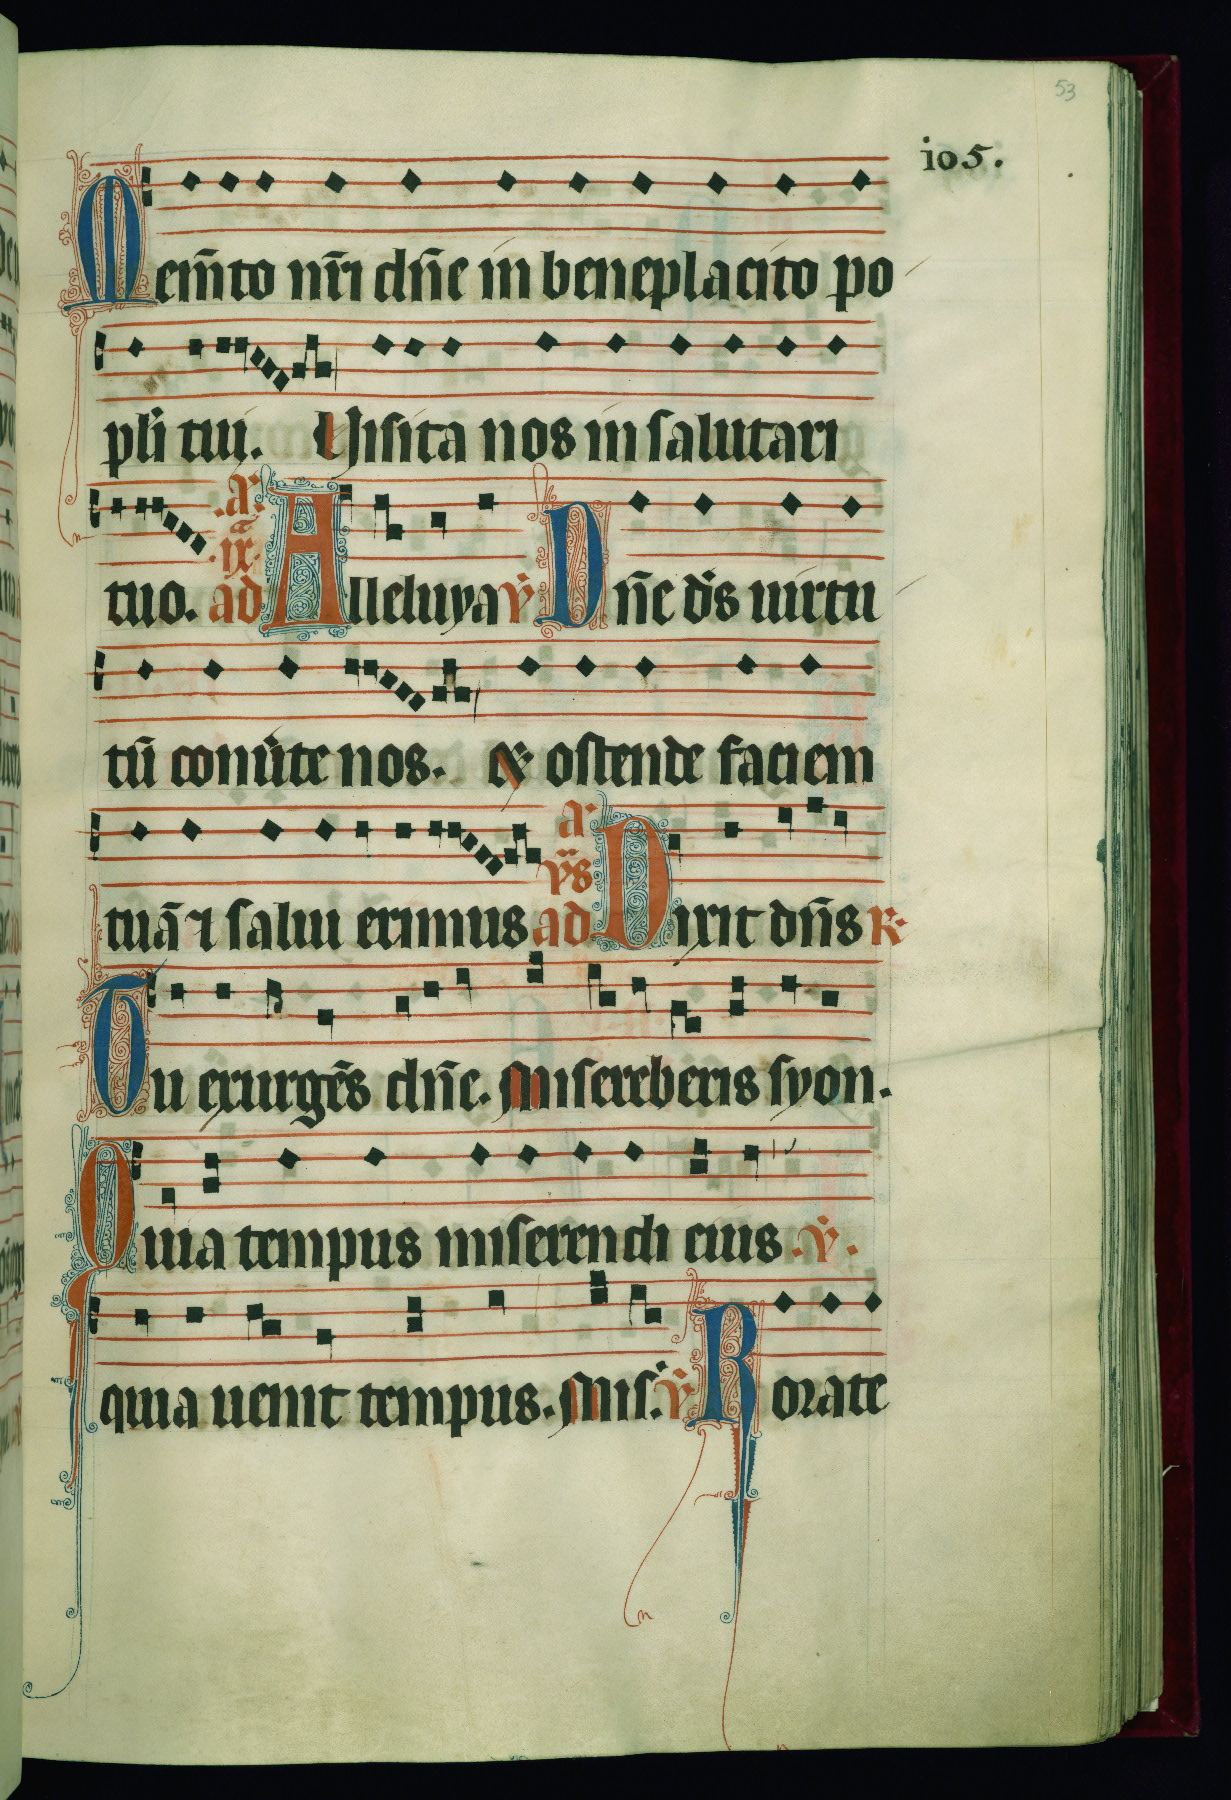 53
io5.
Mem̄to nr̄i dn̄e in beneplacito po
pli tui. Uisita nos in salutari
.a.
.ix.
tuo. ad Alleluya v̇ Dn̄e ds̄ uirtu
tū conūte nos. & ostende faciem
a.
v̈s
tuā ⁊ salui erimus ad Dixit dn̄s R.
Tu exurgēs dn̄e. Misereberis syon.
Quia tempus miserendi eius .v̇.
quia uenit tempus. Mis. v̇ Rorate